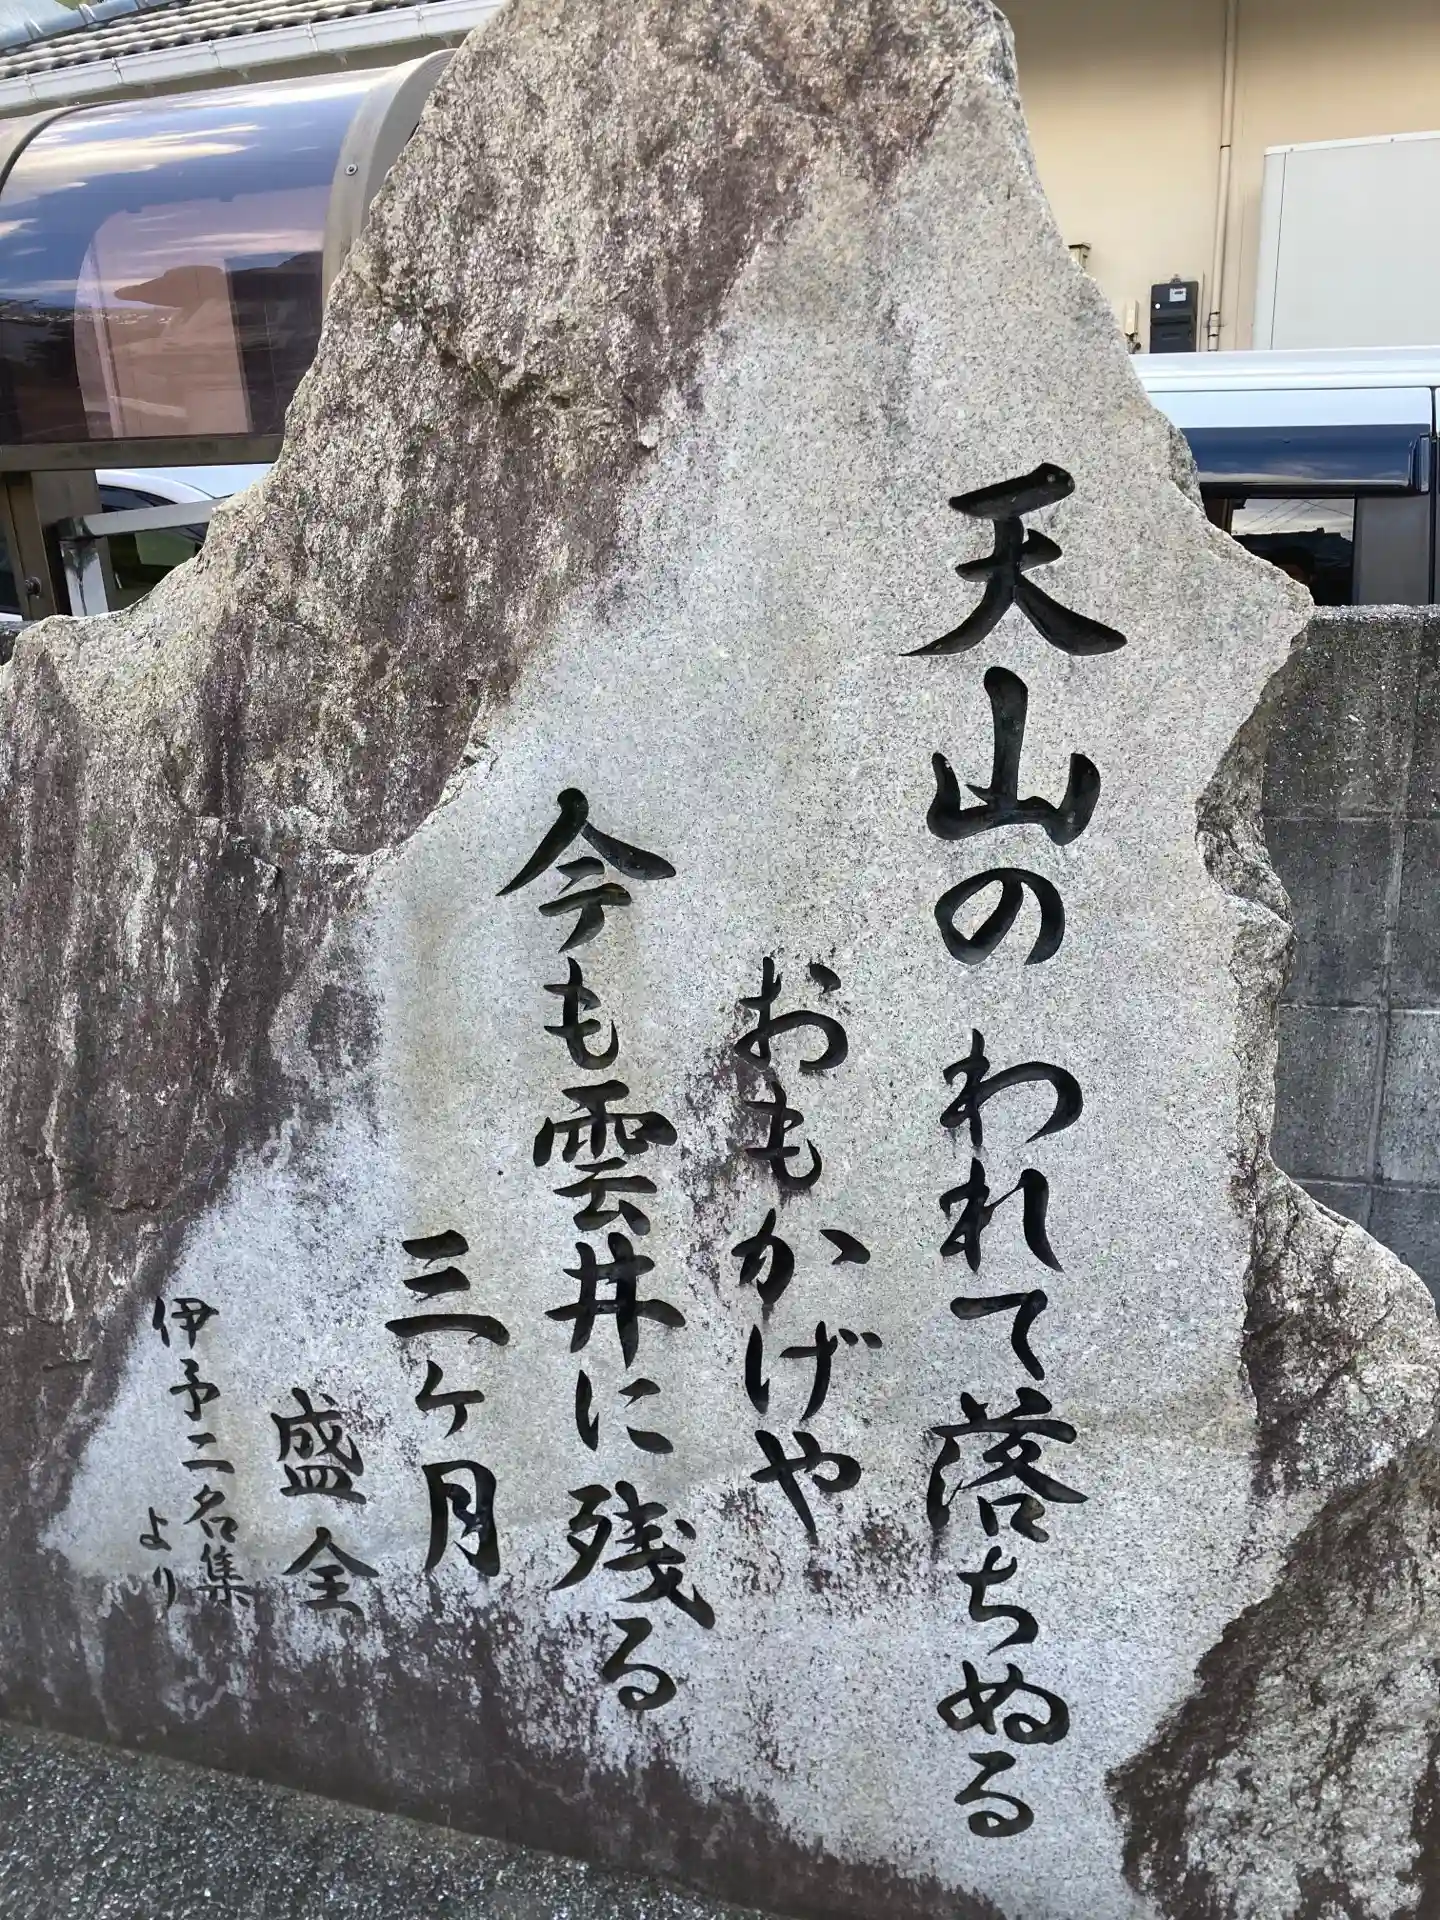 天山のわれて落ちぬる
おもかげや
今も雲井に残る
三ヶ月
盛全
伊予二名集
より